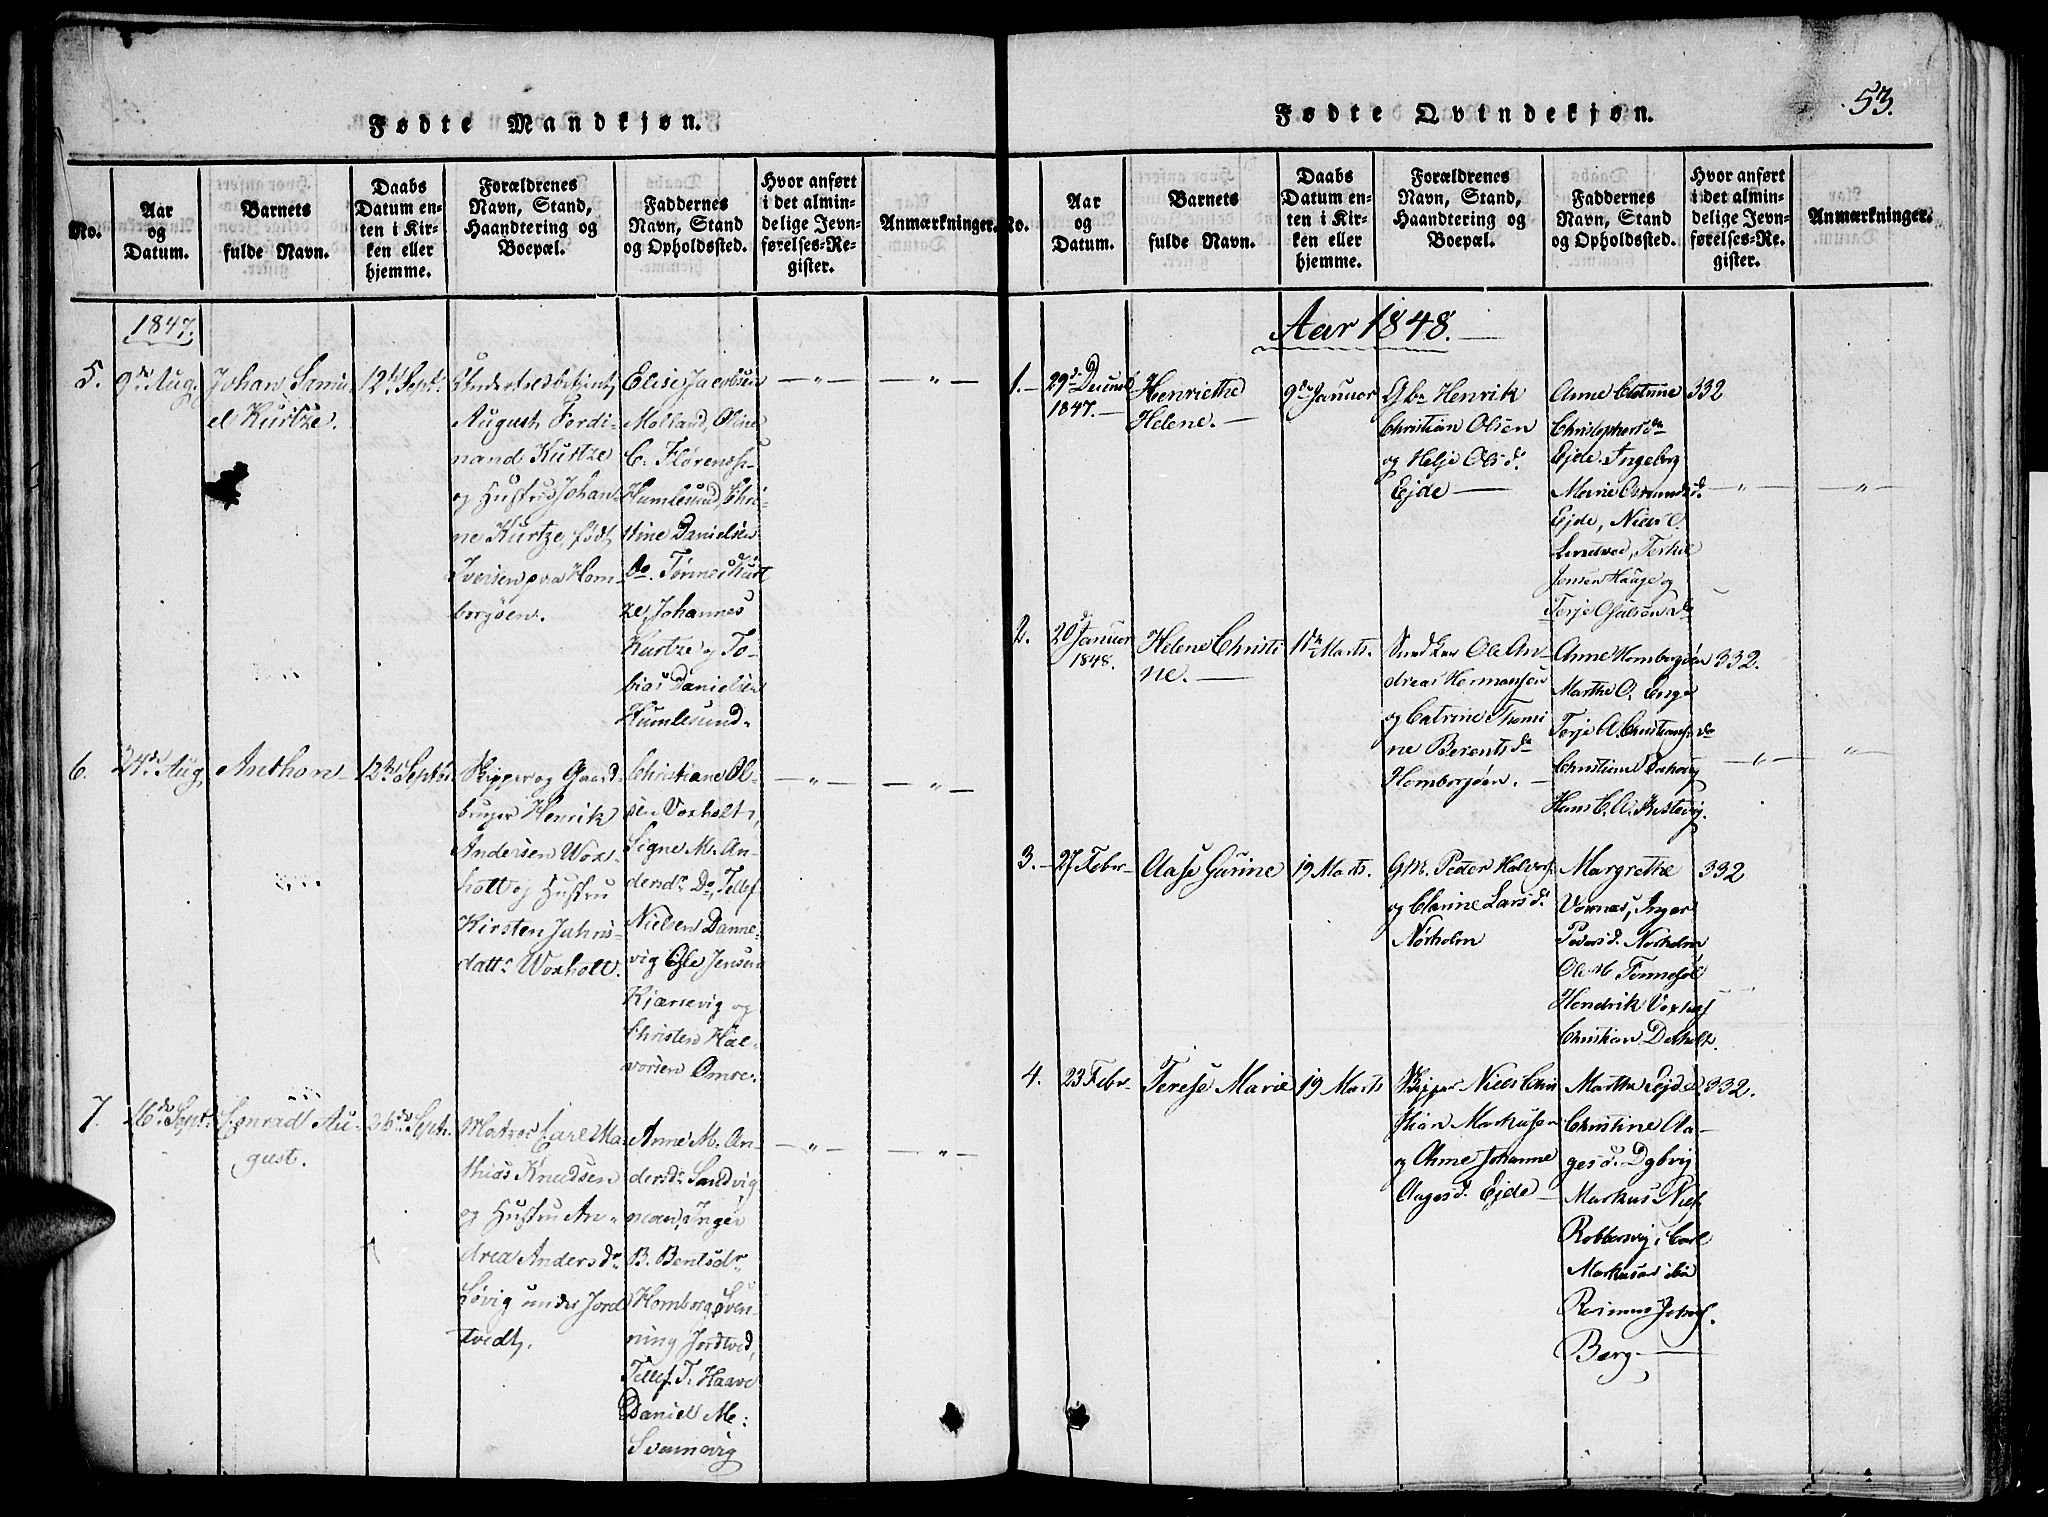 Fødte Mandkjøn.
No.
Aar
og
Datum.
Barnets
fulde Navn.
Daabs
Datum en-
ten i Kir-
ken eller
hjemme.
Forældrenes
Navn, Stand,
Haandtering og
Boepæl.
Faddernes
Navn, Stand
og Opholdssted.
Hvor anført
i det almin-
delige Jevn-
førelses-Re-
gister.
Anmærkninger.
1847.
5.
9de Aug.
Johan Samu
el Kurtze.
12te Septr.
August Ferdi-
nand Kurtze
og Hustru Johan-
ne Kurtze, født
Iversen fra Hom-
borgøen.
Elise Jacobsen
Molland, Oline
C. Florens
Humlesund, Chri-
stine Danielsen
do. Tønnes Kurt
ze, Johannes
Kurtze og To-
bias Danielsen
Humlesund
6.
24de Aug.
Anthon
12te Septbr.
Skipper og Gaard
bruger Henrik
Andersen Wox-
holt og Hustru
Kirsten Jahns-
datter Woxholt.
Christiane Ol-
sen Voxholt,
Signe M. An-
dersdr Do, Tellef
Nielsen Danne-
vig Ole Jensen
Kjærsevig og
Christen Hal-
vorsen Omre.
7.
16de Septr.
Conrad Au-
gust.
26de Septr.
Matros Carl Ma
thias Knudsen
og Hustru An-
drea Andersdr
Løvig under Jord
tvedt.
Anne M. An-
dersdr Sandvig
, Inger
B. Bentsdr
Homborg, Sven-
ning Jordtved,
Tellef T. Haave
Daniel M.
Svamevig
Fødte Qvindekjøn.
53.
No.
Aar
og
Datum.
Barnets
fulde Navn.
Daabs
Datum en-
ten i Kir-
ken eller
hjemme.
Forældrenes
Navn, Stand,
Haandtering og
Boepæl.
Faddernes
Navn, Stand
og Opholdssted.
Hvor anført
i det almin-
delige Jevn-
førelses-Re-
gister.
Anmærkninger.
Aar 1848.
1.
29de Decemb
1847.
Henriethe
Helene.
9de Januar
Gbr Henrik
Christian Olsen
og Helje Olsd.
Ejde
Anne
Christophersdr
Ejde, Ingeborg
Marie Osmundsd.
Ejde, Niels O.
, Terkil
Jensen Hauge og
Terje Olsen do
332
2.
20de Januar
1848.
Helene Christi
ne.
11te Marts.
Ole An-
dreas Hermansen
og Catrine Thomi
ne Berentsdr
Homborgøen.
Anne Homborgøen
Marthe O. Enge
Terje A. Christians. do
Christiane
Hans C. A. Kistevig.
332.
3.
27 Febr
Aase Gurine
19 Marts.
GM. Peder Halvors.
og Clarine Larsd.
Nørholm
Margrethe
Voxnæs, Inger
Pedersd. Nørholm
Ole M
Hendrik Voxholt
Christian
332
4.
23 Febr
Terese Marie
19 Marts
Skipper Niels Chri
stian Markusen
og Anne Johanne
Aagesd. Ejde
Marthe Ejde
Christine Aa-
gesd. Dybvig
Markus Niels.
Robbersvig, Carl
Markusen ibid
Rasmus
Berg
332.